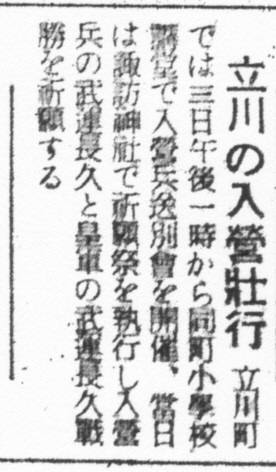 立川の入營壯行 立川町
では三日午後一時から同町小學校
講堂で入營兵送別會を開催、當日
は諏訪神社で祈願祭を執行し入營
兵の武運長久と皇軍の武運長久戰
勝を祈願する